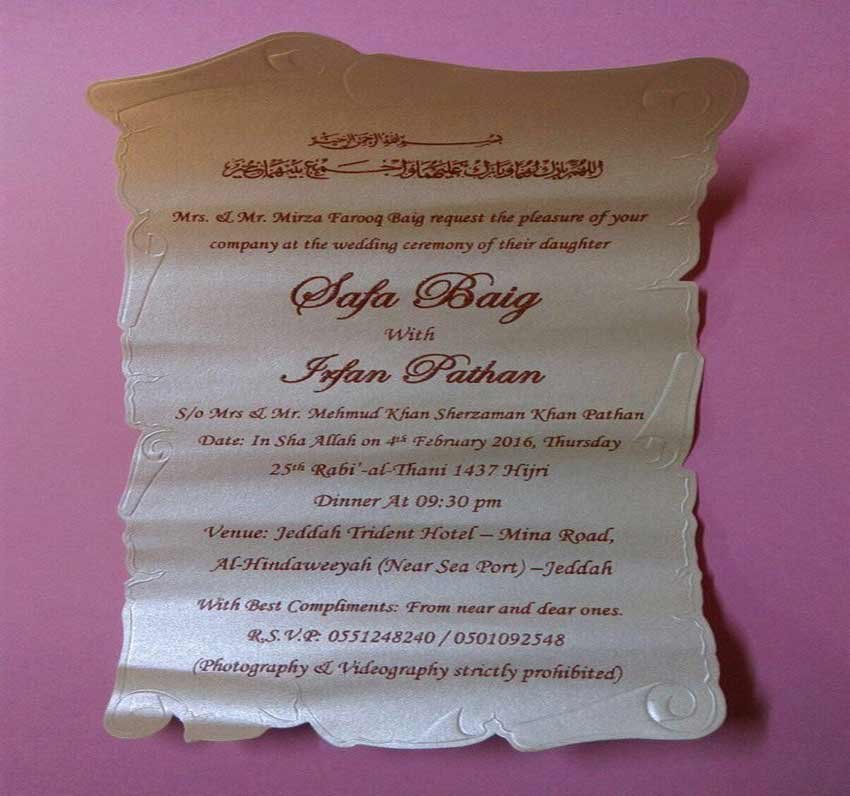 بسم الله الرحمن الرحيم
اللهم بارك لهما وبارك عليهما واجمع بينهما في خير
Mrs. & Mr. Mirza Farooq Baig request the pleasure of your
company at the wedding ceremony of their daughter
Safa Baig
With
Irfan Pathan
S/o Mrs & Mr. Mehmud Khan Sherzaman Khan Pathan
Date: In Sha Allah on 4th February 2016, Thursday
25th Rabi'-al-Thani 1437 Hijri
Dinner At 09:30 pm
Venue: Jeddah Trident Hotel – Mina Road,
Al-Hindaweeyah (Near Sea Port) –Jeddah
With Best Compliments: From near and dear ones.
R.S.V.P: 0551248240 / 0501092548
(Photography & Videography strictly prohibited)